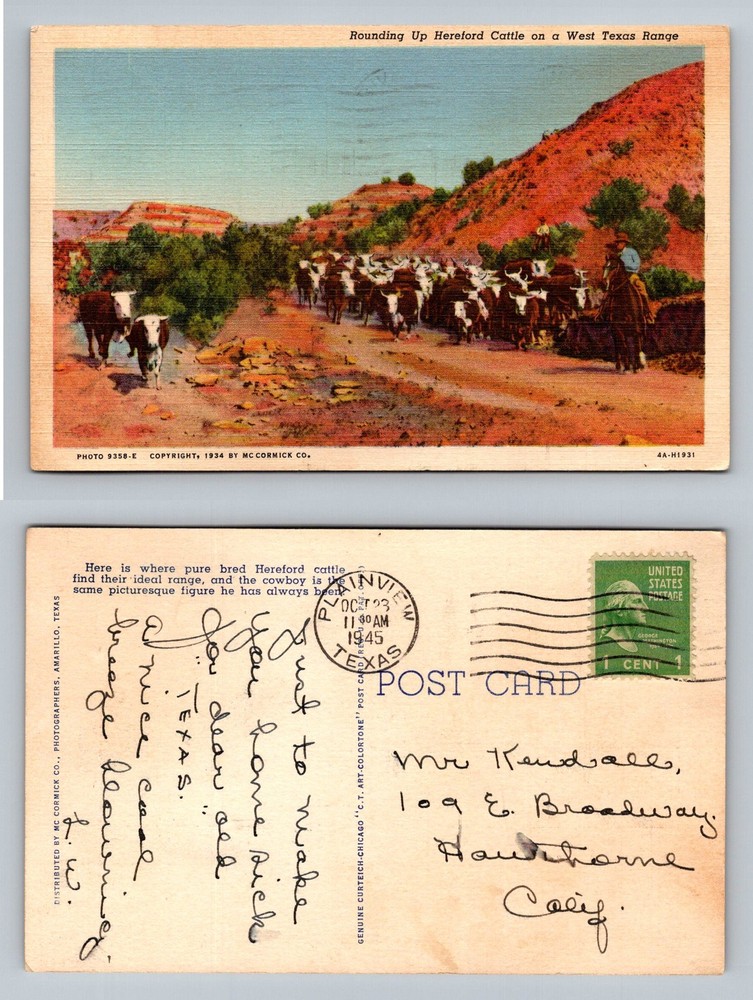 Rounding Up Hereford Cattle on a West Texas Range
PHOTO 9358-E COPYRIGHT, 1934 BY MC CORMICK CO.
4A-H1931
Here is where pure bred Hereford cattle
find their ideal range, and the cowboy is the
same picturesque figure he has always been.
DISTRIBUTED BY MC CORMICK CO., PHOTOGRAPHERS, AMARILLO, TEXAS
Just to make
you home sick
for dear old
"TEXAS."
a nice cool
breeze blowing.
L.W.
GENUINE CURTEICH-CHICAGO "C.T. ART-COLORTONE" POST CARD
PLAINVIEW
OCT 23
11 30 AM
1945
TEXAS
UNITED
STATES
POSTAGE
GEORGE
WASHINGTON
1 CENT 1
POST CARD
Mr Kendall,
109 E. Broadway.
Hawthorne
Calif.